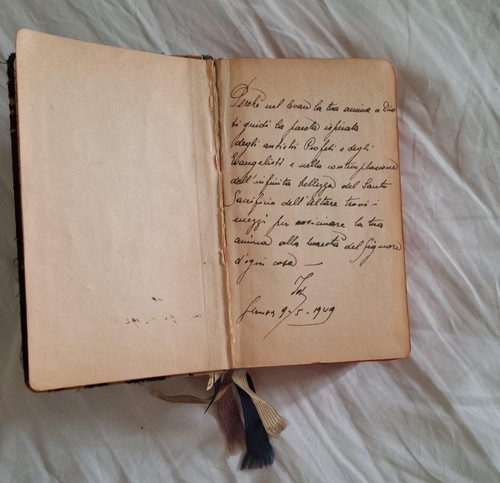 Perchè nel levare la tua anima a Dio
ti guidi la parola ispirata
degli antichi Profeti e degli
Evangelisti e nella contemplazione
dell'infinita bellezza del Santo
Sacrificio dell'Altare trovi i
mezzi per avvicinare la tua
anima alla maestà del Signore
d'ogni cosa —
9-5-1949